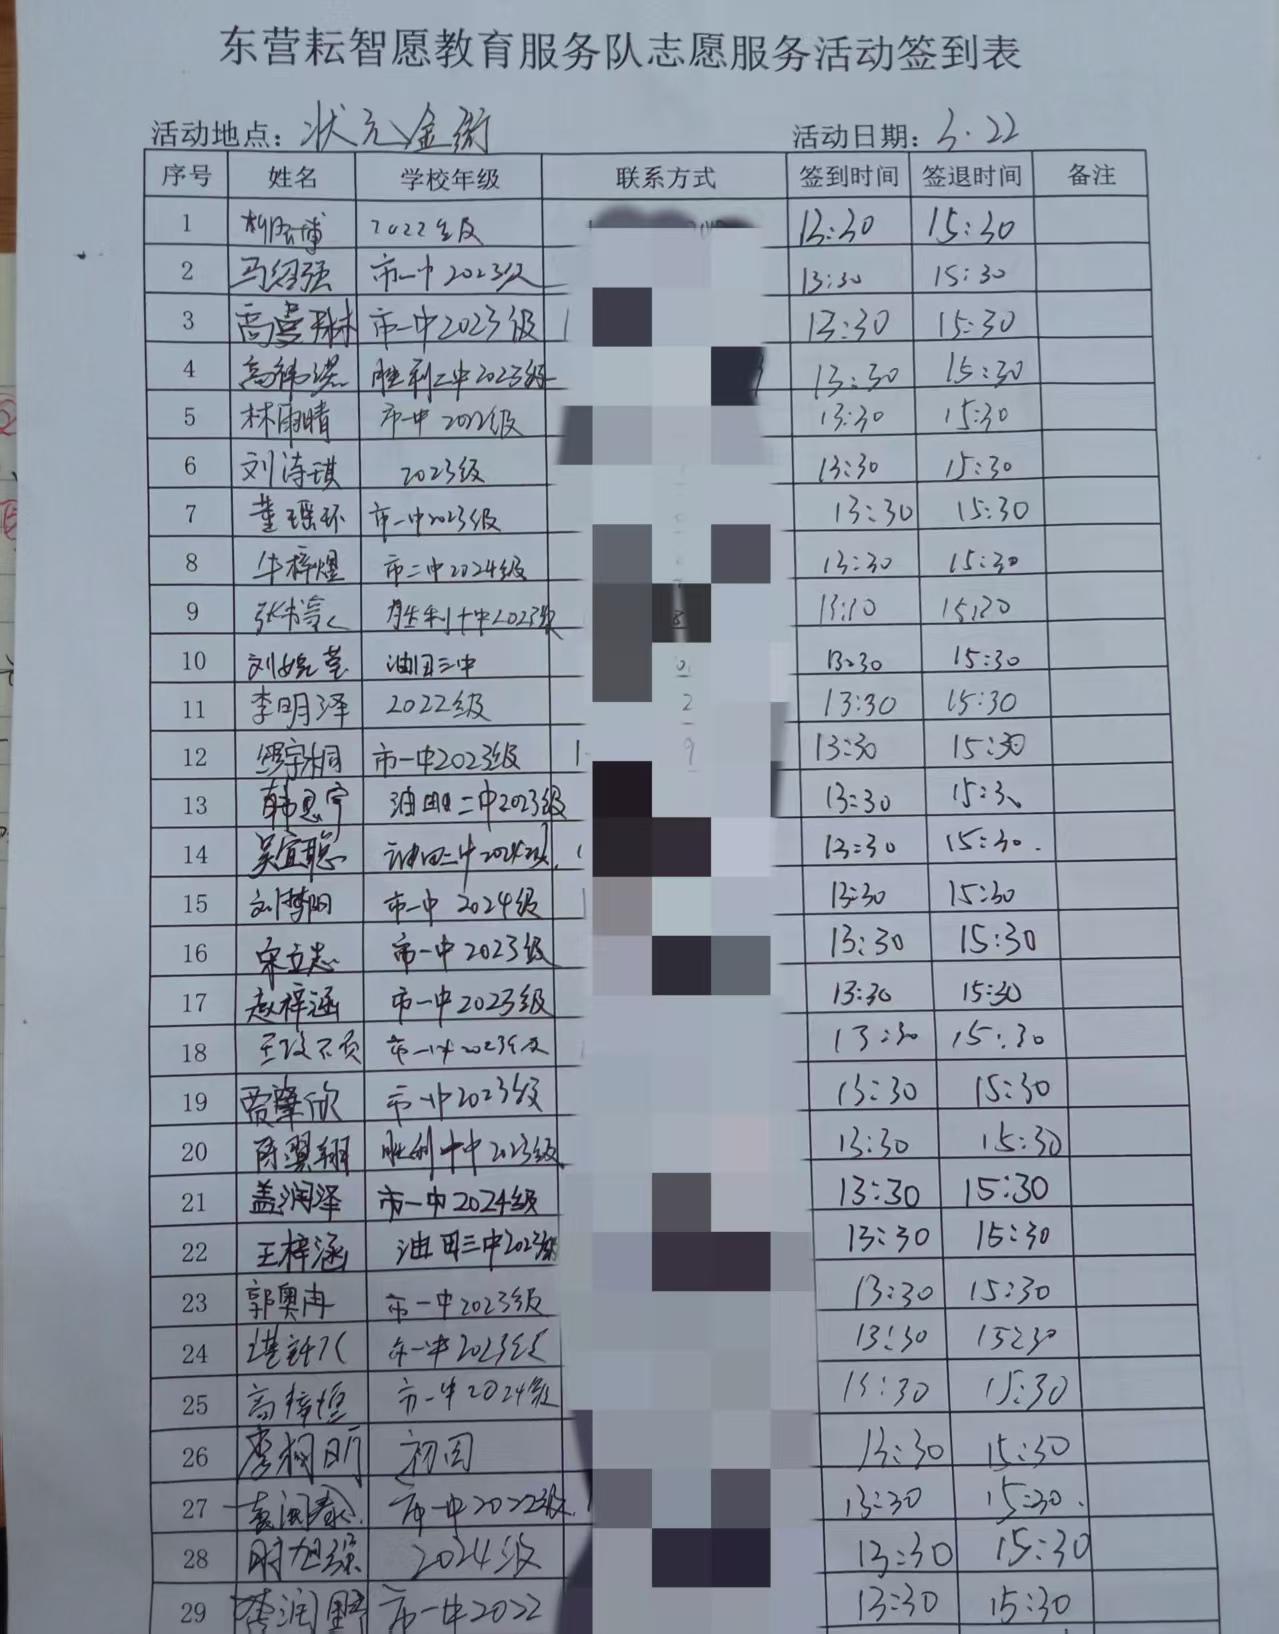 东营耘智愿教育服务队志愿服务活动签到表
活动地点：状元金街 活动日期：3.22
序号 姓名 学校年级 联系方式 签到时间 签退时间 备注
1 博 2022年级 13:30 15:30
2 马绍强 市一中2023级 13:30 15:30
3 高曼琳 市一中2023级 13:30 15:30
4 高祎 胜利二中2023级 13:30 15:30
5 林雨晴 市一中2022级 13:30 15:30
6 刘涛琪 2023级 13:30 15:30
7 董瑶环 市一中2023级 13:30 15:30
8 牛梓煜 市二中2024级 13:30 15:30
9 张书 胜利十中2023级 13:30 15:30
10 刘婉莹 油田三中 13:30 15:30
11 李明泽 2022级 13:30 15:30
12 宇桐 市一中2023级 13:30 15:30
13 韩思宇 油田二中2023级 13:30 15:3
14 吴宜聪 油田三中2024级 13:30 15:30.
15 刘梦阳 市一中 2024级 13:30 15:30
16 宋立志 市一中2023级 13:30 15:30
17 赵梓涵 市一中2023级 13:30 15:30
18 王政不负 市一中2023年级 13:30 15:30
19 贾肇欣 市一中2023级 13:30 15:30
20 陈翼翔 胜利十中2023级 13:30 15:30
21 盖润泽 市一中2024级 13:30 15:30
22 王梓涵 油田三中2023级 13:30 15:30
23 郭奥冉 市一中2023级 13:30 15:30
24 市一中2023级 13:30 15:30
25 高梓恒 市一中2024级 13:30 15:30
26 初四 13:30 15:30
27 袁润 市一中2022级 13:30 15:30.
28 时旭 2024级 13:30 15:30
29 李润 市一中2022 13:30 15:30